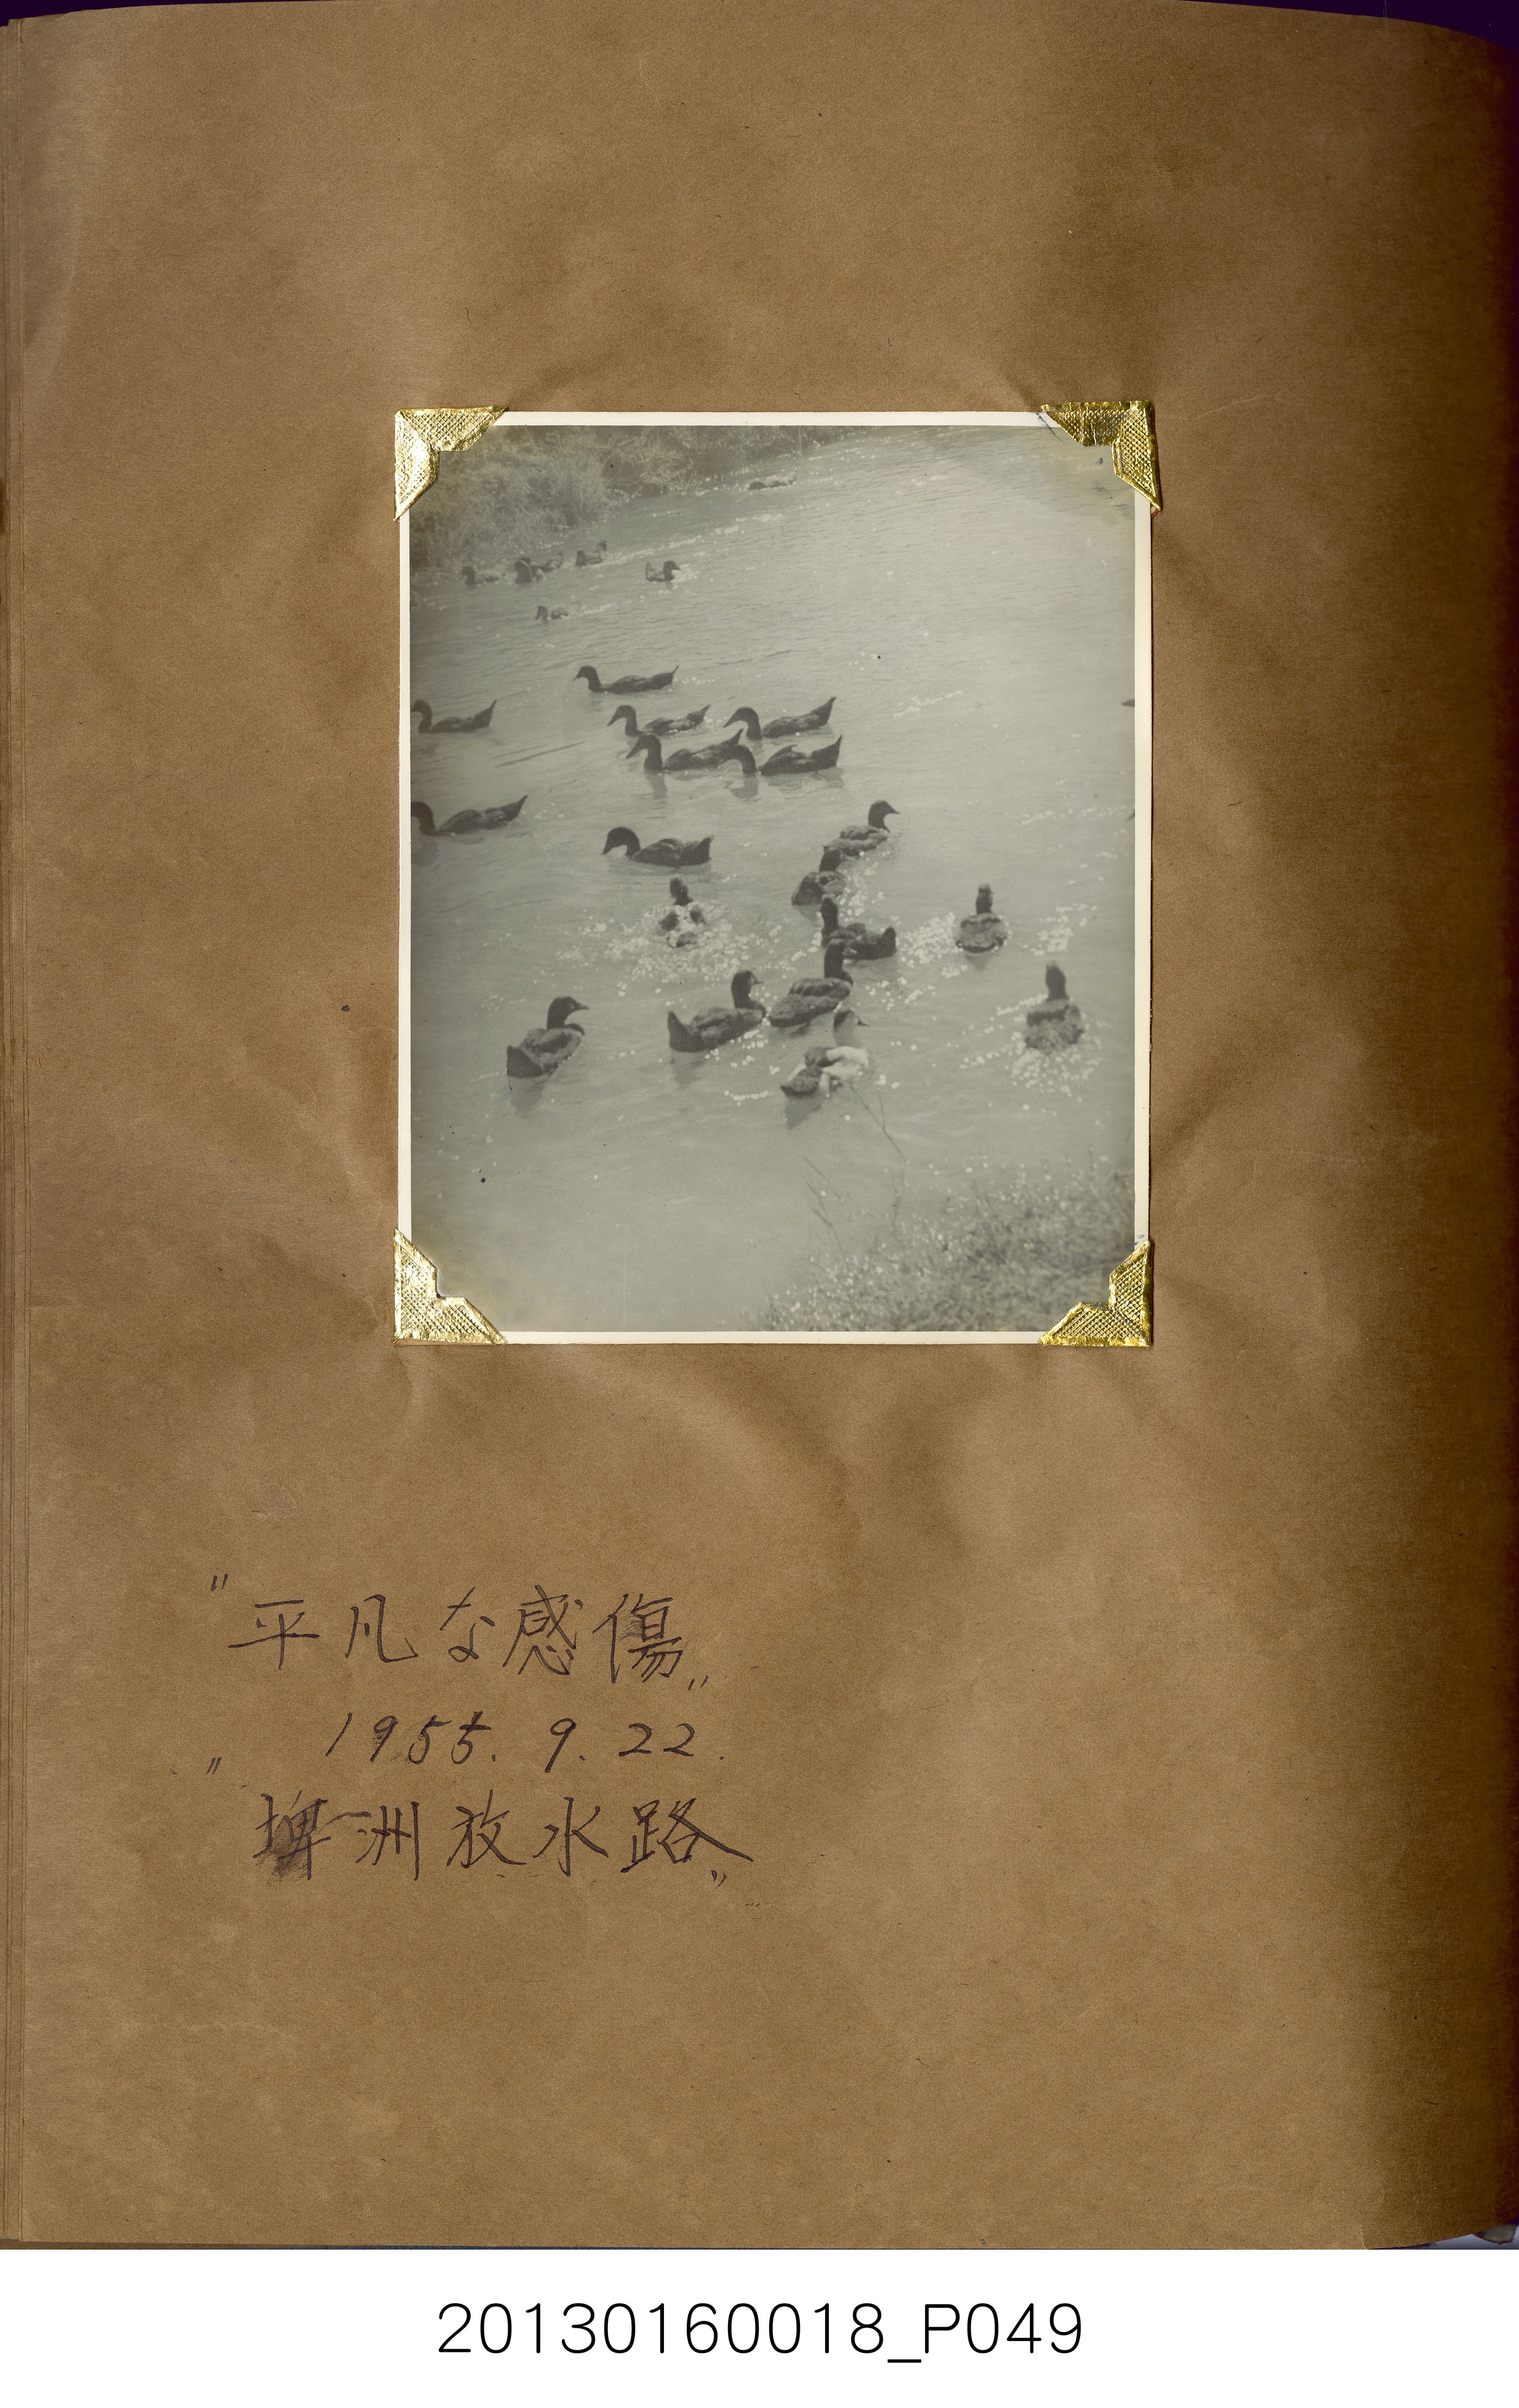 "平凡な感傷"
1955. 9. 22.
"埤洲放水路"
20130160018_P049